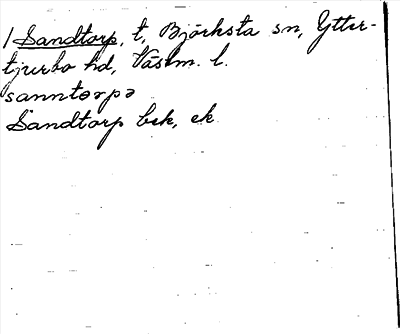 / Sandtorp, t, Björksta sn, Ytter-
tjurbo hd, Västm. l.
sanntorpə
Sandtorp bek, ek